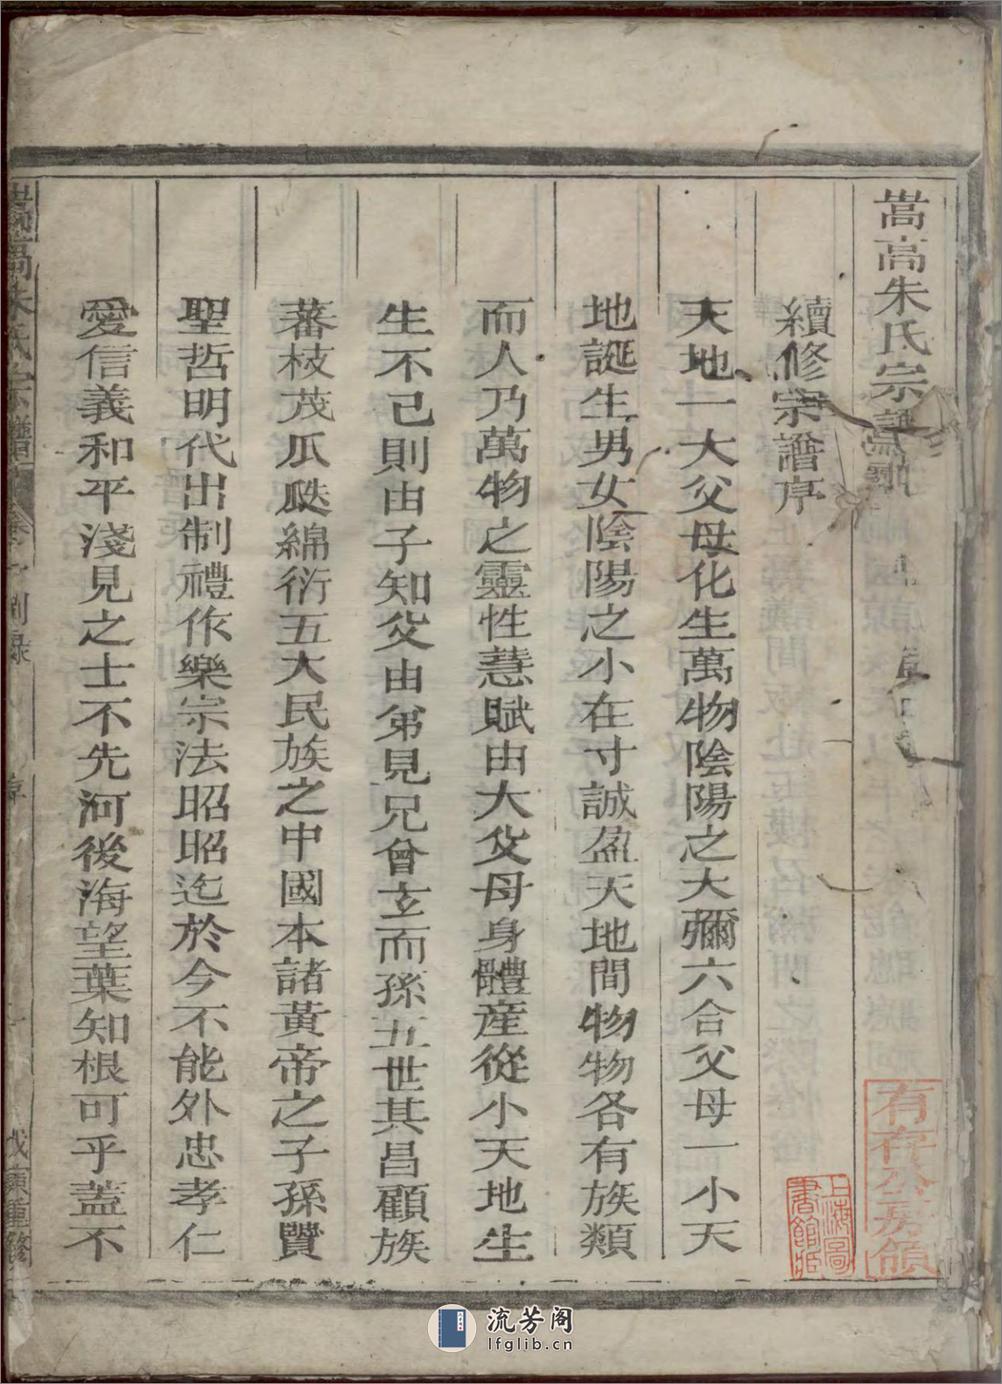 嵩高朱氏宗譜
續修宗譜序
天地一大父母化生萬物陰陽之大彌六合父母一小天
地誕生男女陰陽之小在寸誠盈天地間物物各有族類
而人乃萬物之靈性慧賦由大父母身體産從小天地生
生不已則由子知父由弟見兄曾玄而孫五世其昌顧族
蕃枝茂瓜瓞綿衍五大民族之中國本諸黃帝之子孫贒
聖哲明代出制禮作樂宗法昭昭迄於今不能外忠孝仁
愛信義和平淺見之士不先河後海望葉知根可乎蓋不
嵩高朱氏宗譜
戊寅重修
上海圖
書館藏
流芳阁
lfglib.cn